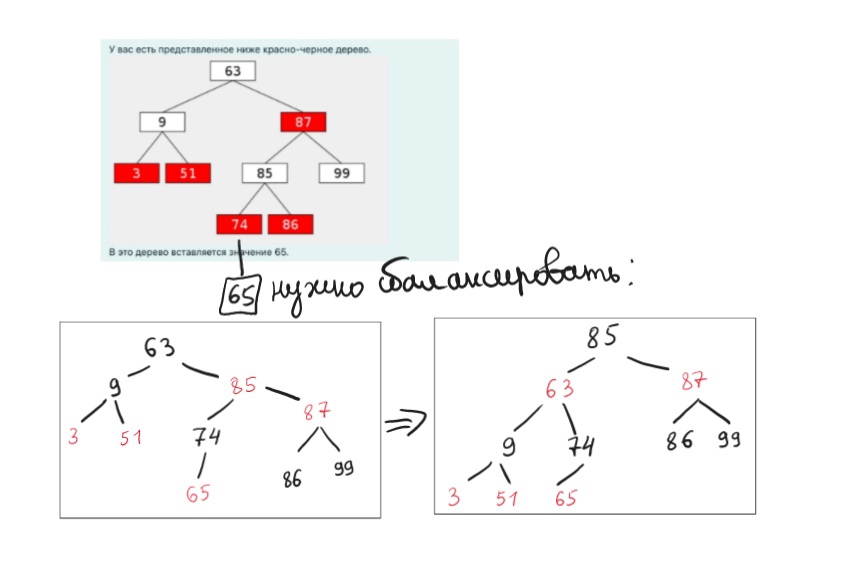 У вас есть представленное ниже красно-черное дерево.
63
9 87
3 51 85 99
74 86
В это дерево вставляется значение 65.
65 нужно сбалансировать:
63
9 85
87
3 51 74
86 99
65
⇒
85
63 87
9 74 86 99
3 51 65